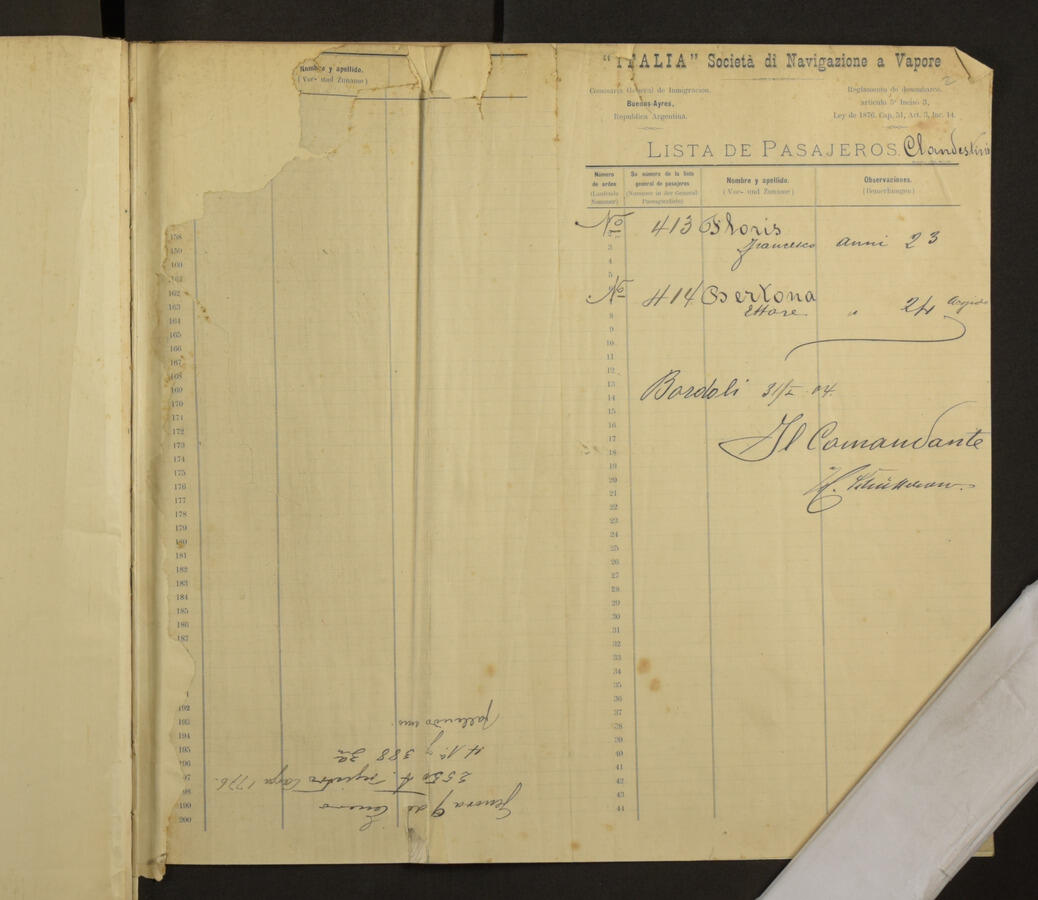 Nombre y apellido.
(Vor- und Zuname)
158
159
160
161
162
163
164
165
166
167
168
169
170
171
172
173
174
175
176
177
178
179
180
181
182
183
184
185
186
187
192
193
194
195
196
97
98
199
200
Genova 9 de Enero
2550 t. registro Carga 1776.
4 1ª y 388 3a
"ITALIA" Società di Navigazione a Vapore
2
Comisaria General de Inmigracion.
Buenos-Ayres,
Republica Argentina.
Reglamento de desembarco.
articulo 5º Inciso 3,
Ley de 1876. Cap. 51, Art. 3, Inc. 14.
LISTA DE PASAJEROS. Clandestini
Número de orden
(Laufende Nummer)
Su número de la lista general de pasajeros
(Nummer in der General-Passagierliste)
Nombre y apellido.
(Vor- und Zuname)
Observaciones.
(Bemerkungen)
Nº 413 Floris
Francesco anni 23
3
4
5
Nº 414 Bertona
Ettore " 24
8
9
10
11
12
13
Bordoli 31/I 04.
14
15
16
17
Il Comandante
18
19
20
21
22
23
24
25
26
27
28
29
30
31
32
33
34
35
36
37
38
39
40
41
42
43
44